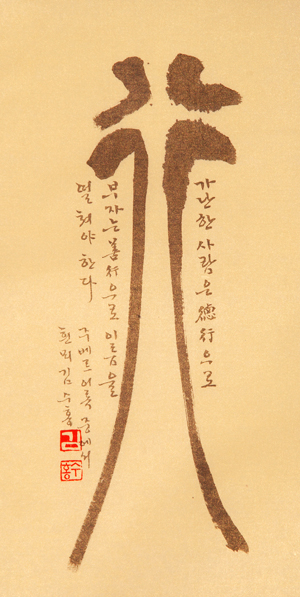 行
가난한 사람은 德行으로
부자는 善行으로 이름을
떨쳐야 한다
주베르 어록 중에서
현뫼 김수홍
김
수홍